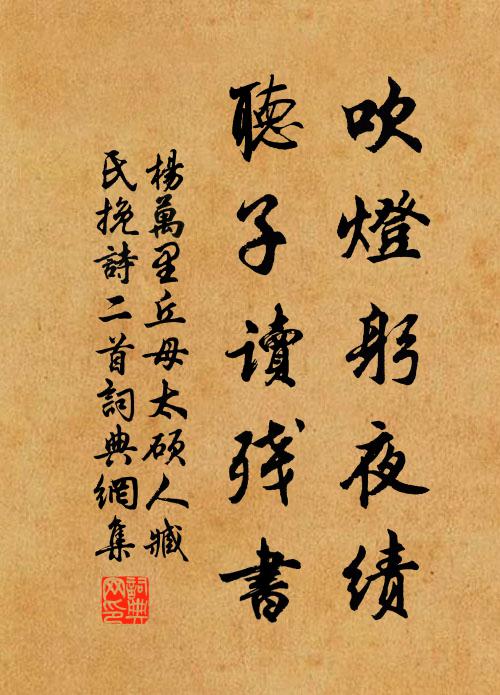 吹燈躬夜績
聽子讀殘書
楊萬里丘母太碩人臧
氏挽詩二首詞典網集
詞典网印